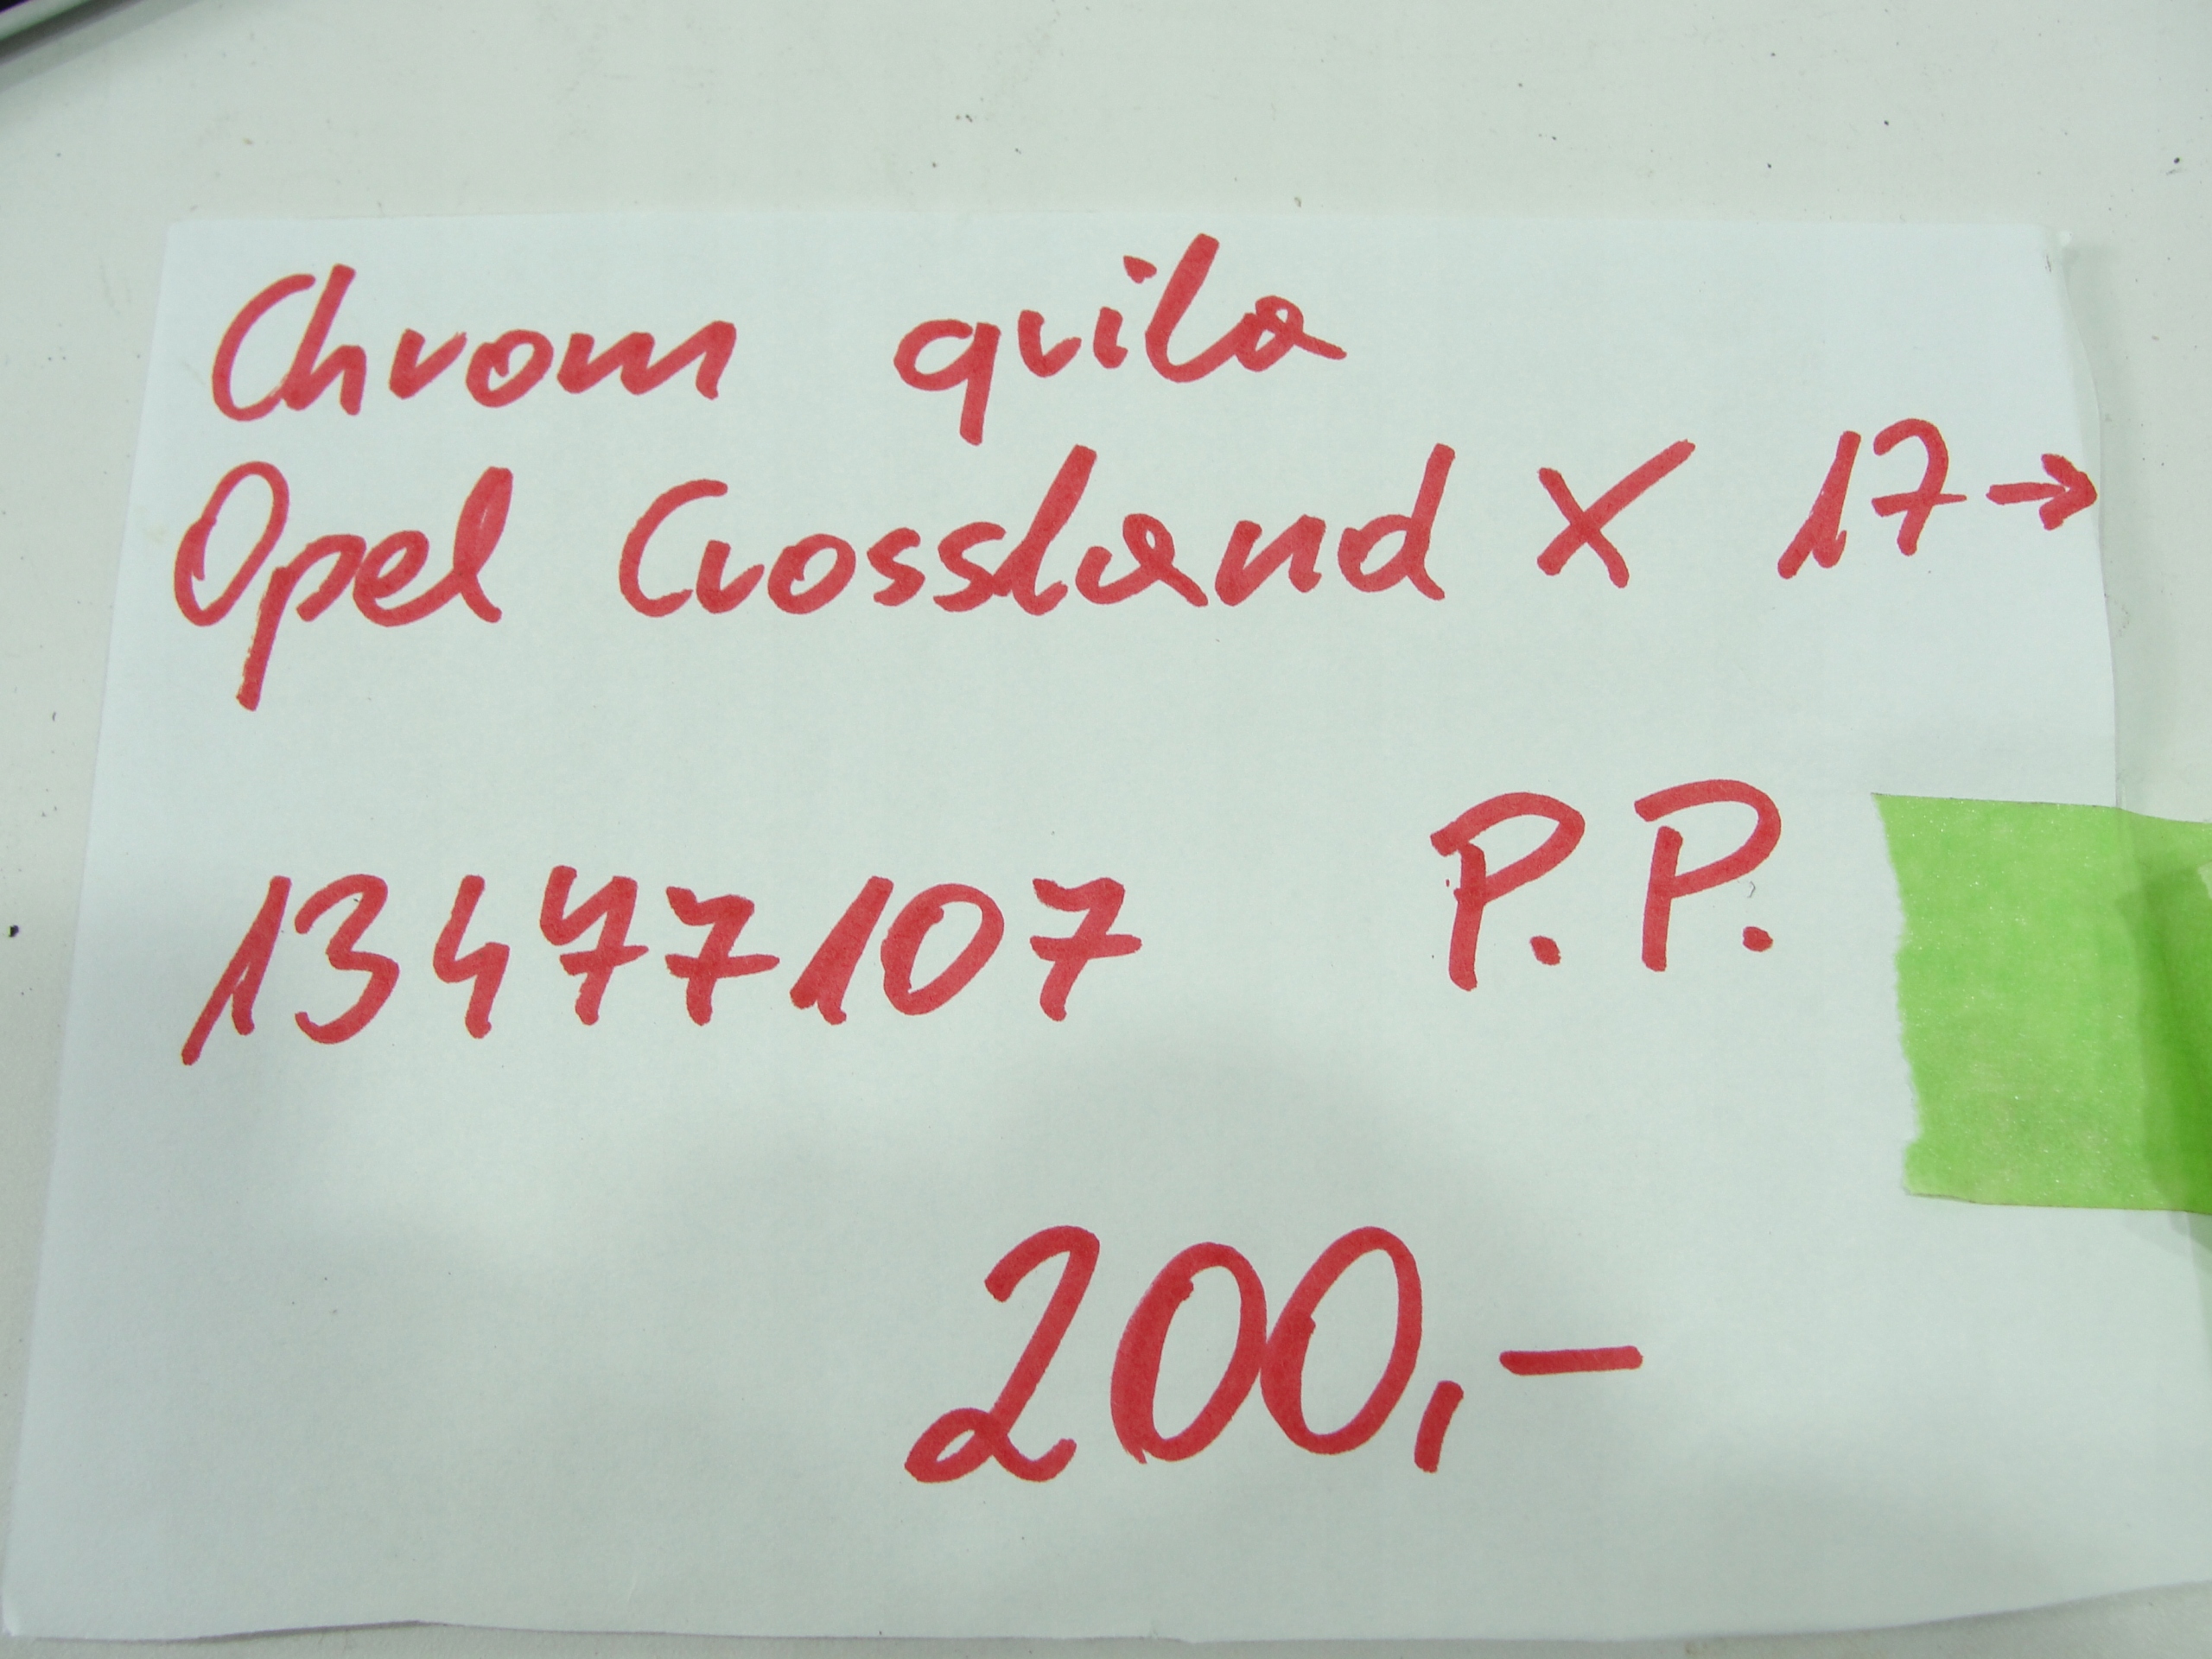 Chrom grila
Opel Crossland X 17→
13477107 P.P.
200,-